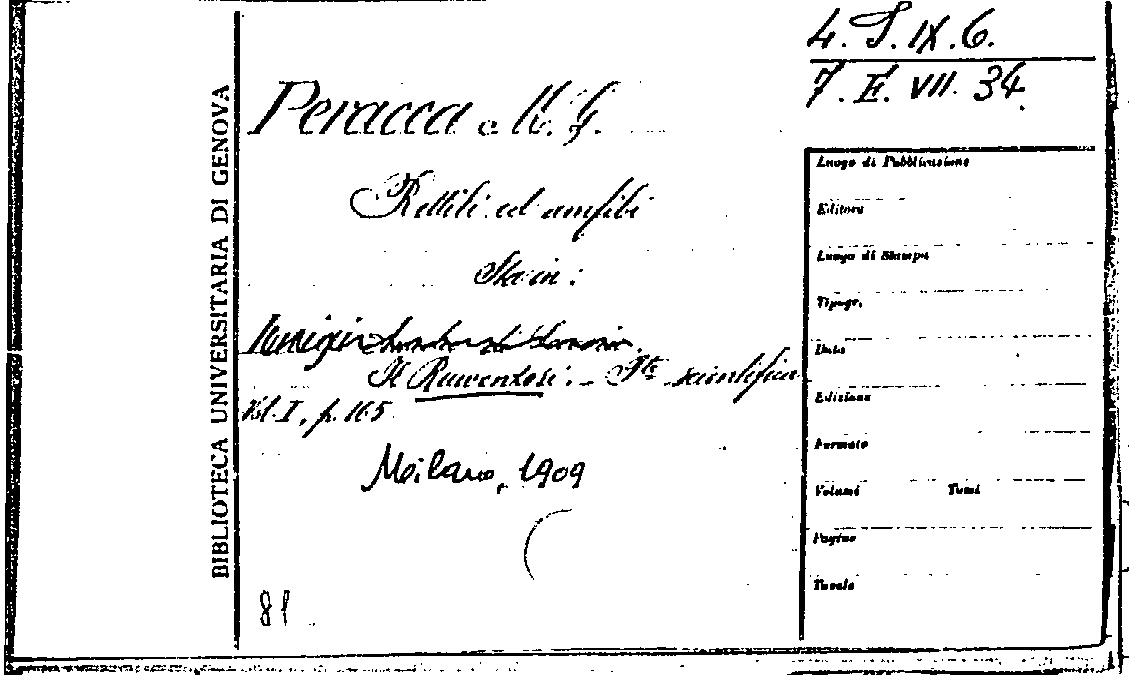 4. S. IX. 6.
7. E. VII. 34.
BIBLIOTECA UNIVERSITARIA DI GENOVA
Peracca M. G.
Rettili ed amfibi
Sta in:
Il Ruwenzori. - Pte scientifica
Vol. I, p. 165
Milano, 1909
81
Luogo di Pubblicazione
Editore
Luogo di Stampa
Tipogr.
Data
Edizione
Formato
Volumi Tomi
Pagine
Tavole